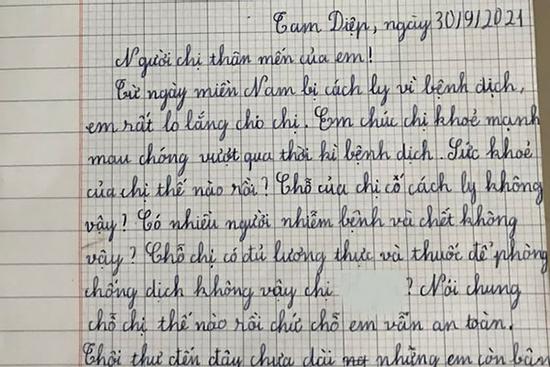 Tam Điệp, ngày 30/9/2021
Người chị thân mến của em!
Từ ngày miền Nam bị cách ly vì bệnh dịch,
em rất lo lắng cho chị. Em chúc chị khoẻ mạnh
mau chóng vượt qua thời kì bệnh dịch. Sức khoẻ
của chị thế nào rồi? Chỗ của chị có cách ly không
vậy? Có nhiều người nhiễm bệnh và chết không
vậy? Chỗ chị có đủ lương thực và thuốc để phòng
chống dịch không vậy chị ? Nói chung
chỗ chị thế nào rồi chứ chỗ em vẫn an toàn.
Thôi thư đến đây chưa dài nhưng em còn bận